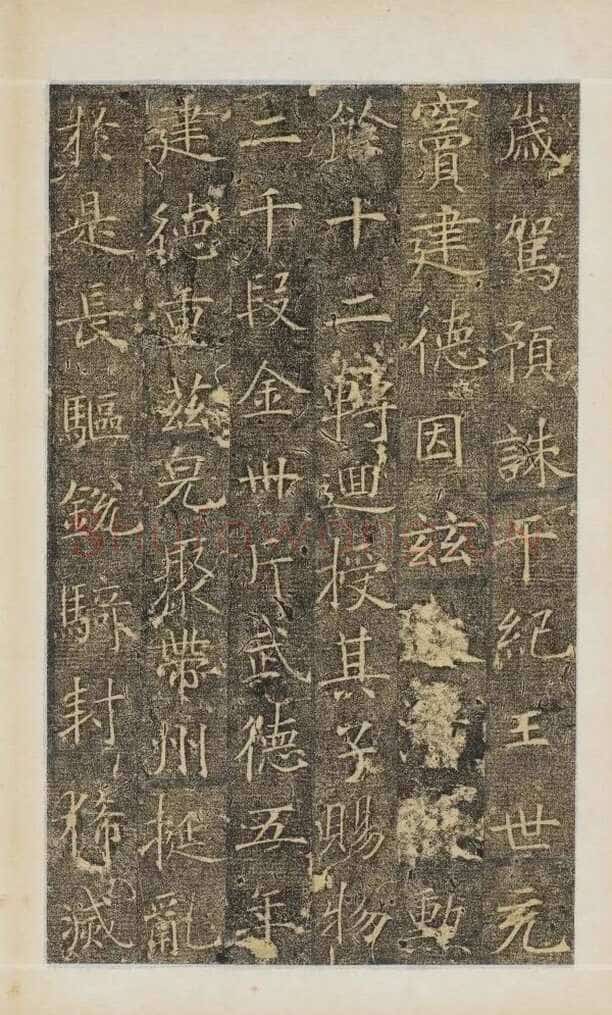 歲駕預誅干紀王世充
竇建德因玆勳
餘十二轉迴授其子賜物
二千段金卅斤武德五年
建德重茲聚帶州挺亂
於是長驅銳騎封狶滅